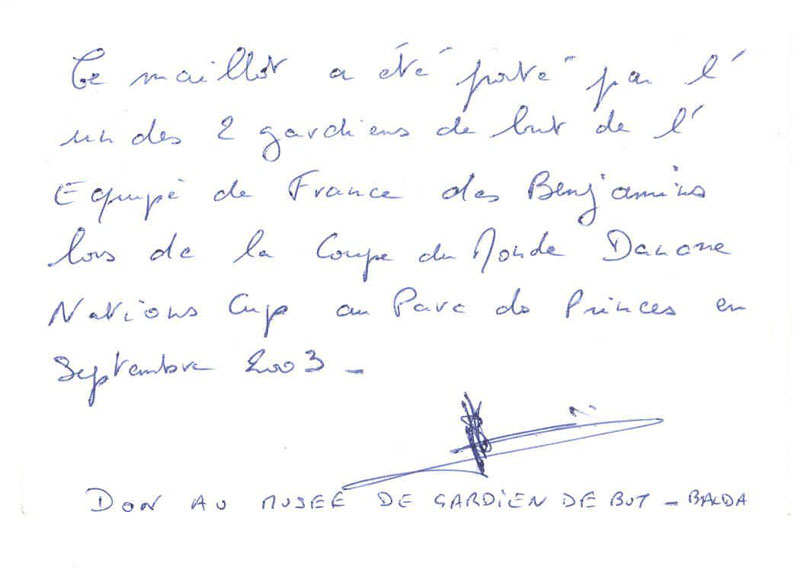 Ce maillot a été "porté" par l'
un des 2 gardiens de but de l'
Equipe de France des Benjamins
lors de la Coupe du Monde Danone
Nations Cup au Parc des Princes en
Septembre 2003 -
DON AU MUSEE DE GARDIEN DE BUT - BALDA